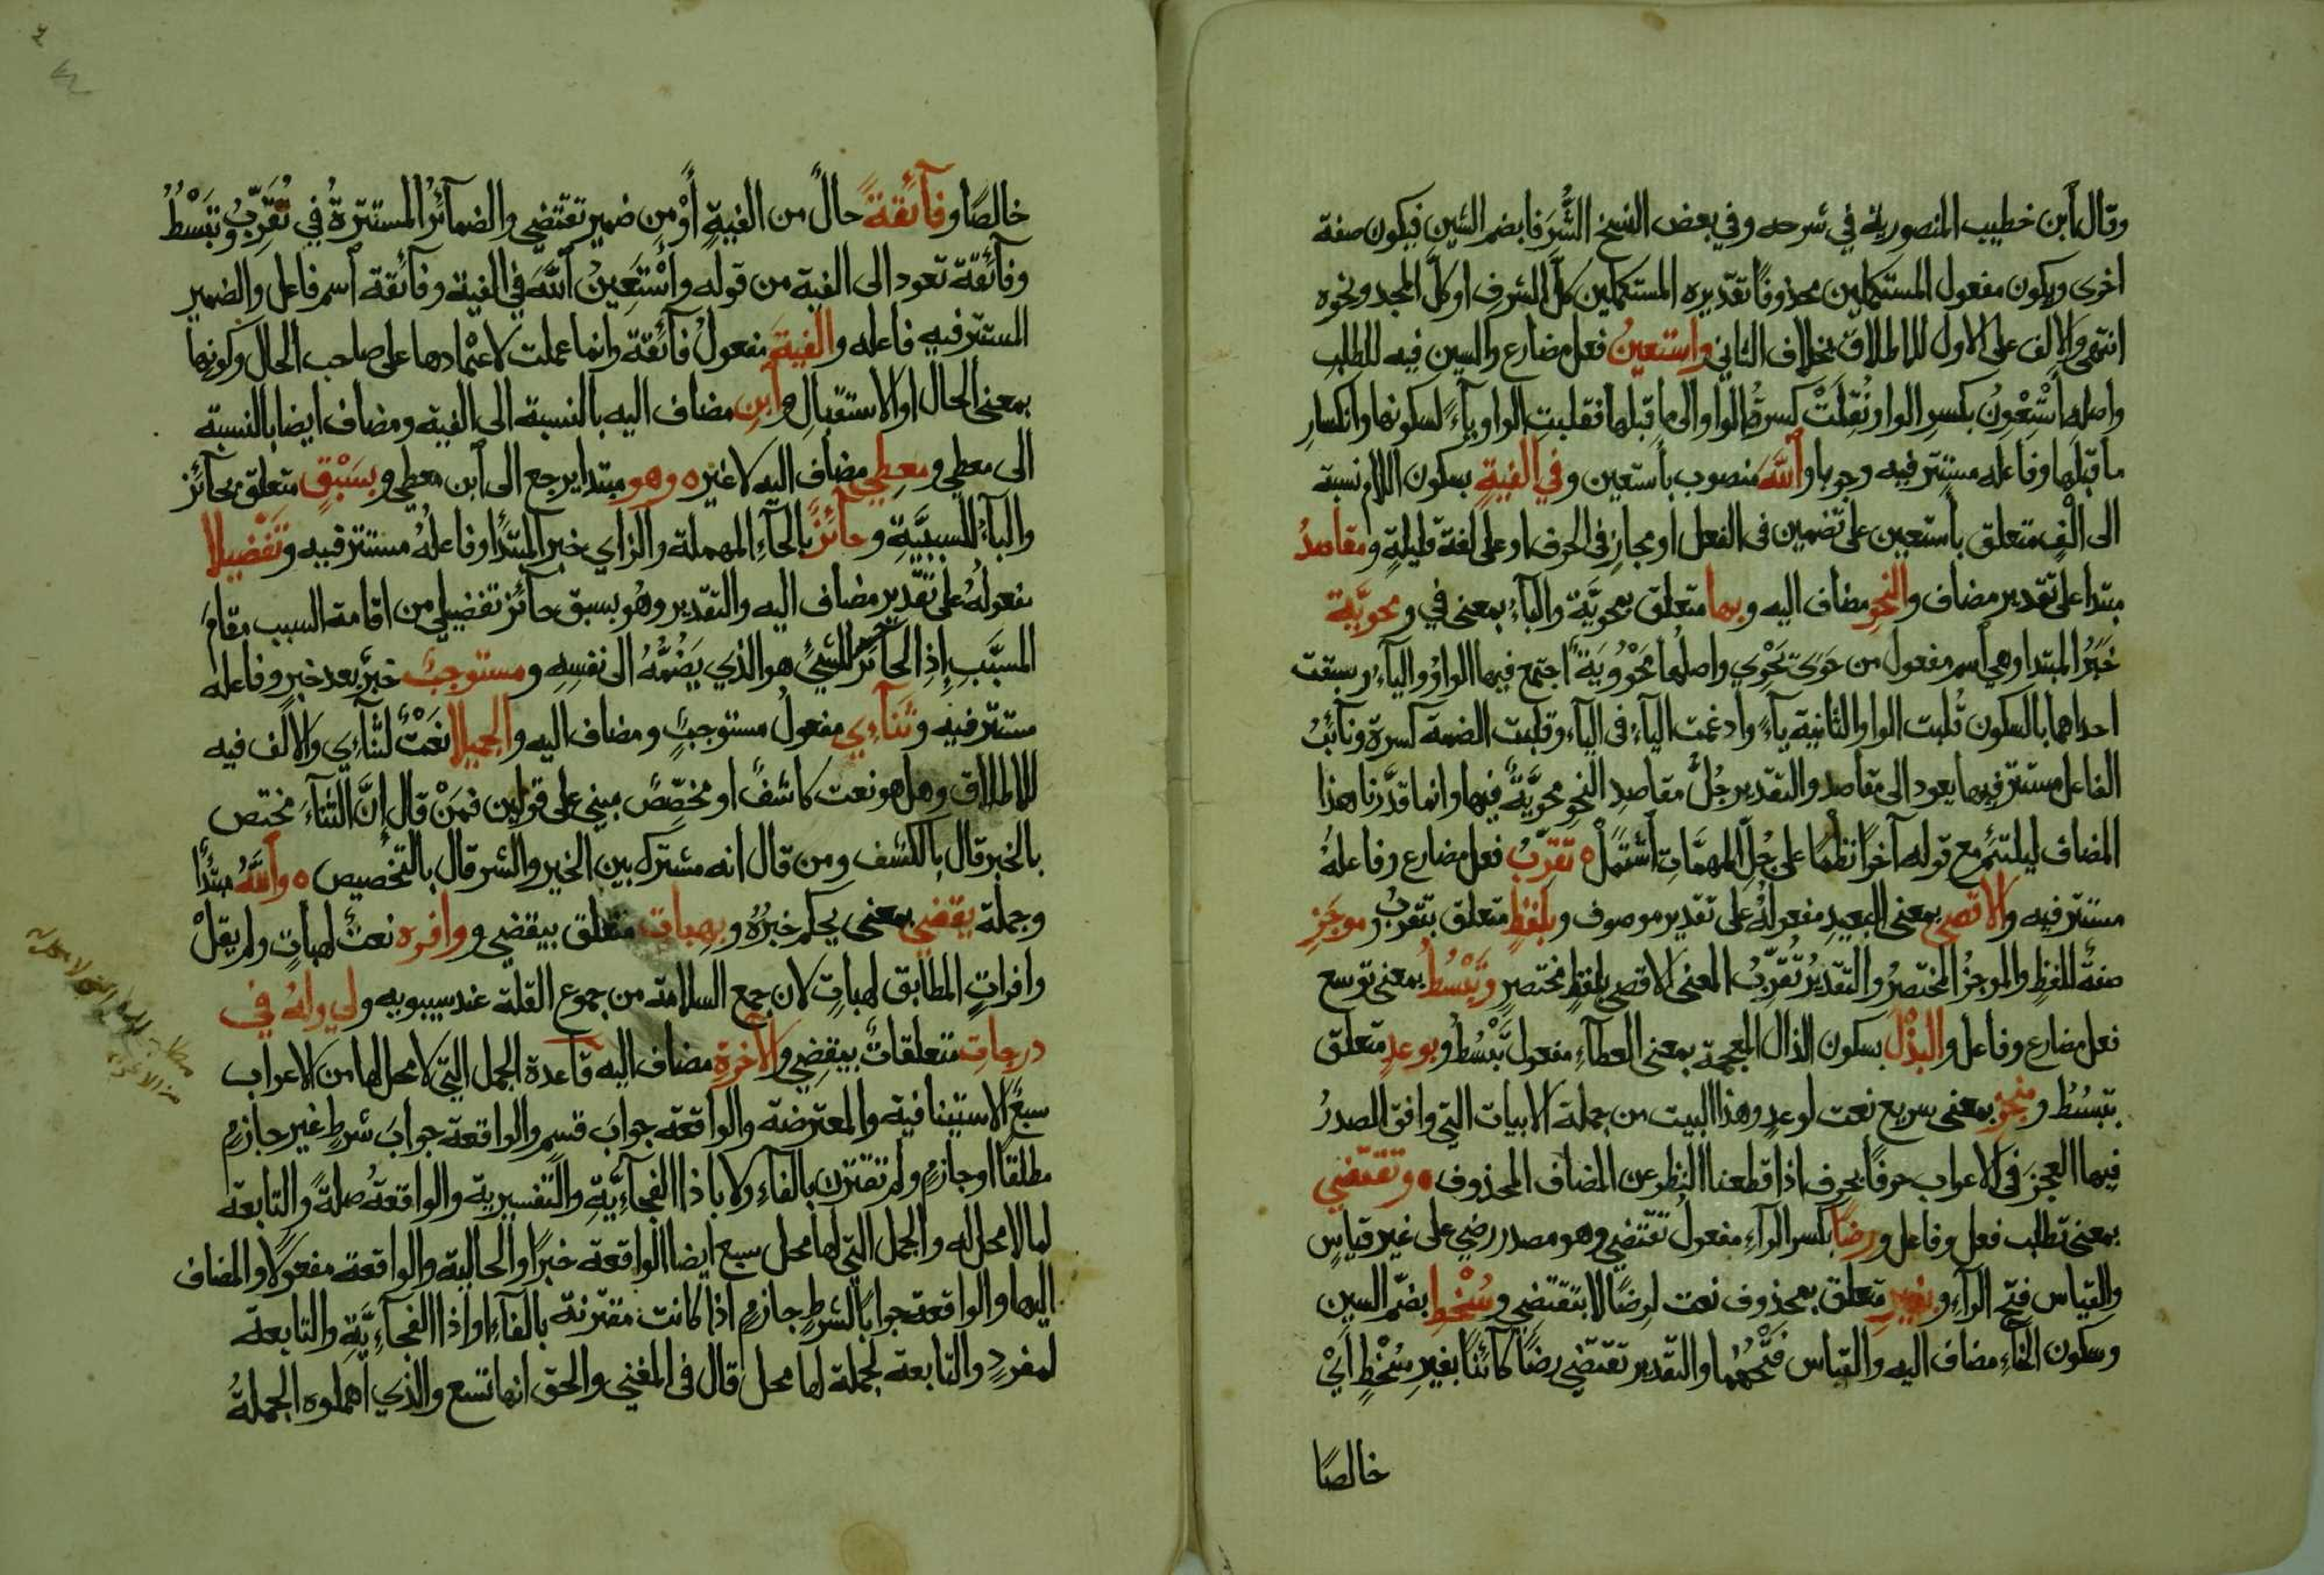 وقال ابن خطيب المنصورية في شرحه وفي بعض النسخ الشُّرَفا بضم الشين فيكون صفة
اخرى ويكون مفعول المستكملين محذوفا تقديره المستكملين كلَّ الشرف او كلَّ المجد ونحوه
انتهى والالف على الاول للاطلاق بخلاف الثاني واستعينُ فعل مضارع والسين فيه للطلب
واصلها اَسْتَعْوِنُ بكسر الواو نُقِلَتْ كسرة الواو الى ما قبلها فقلبت الواو ياءً لسكونها وانكسار
ما قبلها وفاعله مستتر فيه وجوبا واللهَ منصوب باستعين وفي الفيةٍ بسكون اللام نسبة
الى الْفٍ متعلق باستعين على تضمين في الفعل او مجازٍ في الحرف او على لغة قليلةٍ ومقاصدُ
مبتدا على تقدير مضاف والنحوِ مضاف اليه وبها متعلق بمحويَّة والباءُ بمعنى في ومحويَّة
خَبَرُ المبتدا وهي اسم مفعول من حَوَىَ يَحْوِي واصلها مَحْوُويَةٌ اجتمع فيها الواوُ والياءُ وسبقت
احداهما بالسكون قُلبت الواو الثانية ياءً وادغمت الياء في الياء وقلبت الضمة كسرة ونائبُ
الفاعل مستتر فيها يعود الى مقاصد والتقدير جُلُّ مقاصدِ النحوِ محويَّةٌ فيها وانما قدَّرنا هذا
المضاف ليلتئم مع قوله آخرًا نظمًا على جُلِّ المهمَّات اشتملْ ٥ تقرِّبُ فعل مضارع وفاعلهُ
مستتر فيه والاقصى بمعنى البعيدِ مفعولُهُ على تقدير موصوف وبلفظٍ متعلق بتقربُ وموجَزِ
صفةٌ للفظٍ والموجزُ المختصرُ والتقديرُ تُقَرِّبُ المعنى الاقصى بلفظٍ مختصرٍ وتَبْسُطُ بمعنى توسع
فعل مضارع وفاعل والبذْلَ بسكون الذال المعجمة بمعنى العطاءِ مفعول تَبْسُطُ وبوعدٍ متعلق
بتبسُطُ ومنجزِ بمعنى سريع نعت لوعدٍ وهذا البيت من جملة الابيات التي وافق الصدرُ
فيها العجزَ في الاعراب حرفًا بحرف اذا قطعنا النظر عن المضاف المحذوف ٥ وتقتضي
بمعنى تطلب فعل وفاعل ورضًا بكسر الراءِ مفعولُ تقتضي وهو مصدر رضي على غير قياسٍ
والقياس فتح الراءِ وبغيرِ متعلق بمحذوف نعت لرضًا لا بتقتضي وسُخْطٍ بضمّ السين
وسكون الخاءِ مضاف اليه والقياس فَتْحُهُما والتقدير تقتضي رضًا كائنًا بغيرِ سُخْطٍ ايْ
خالصًا
خالصًا وفآئقةً حالٌ من الفيةٍ أوْ من ضمير تقتضي والضمآئرُ المستترةُ في تُقَرِّبُ وتَبْسُطُ
وفآئقة تعود الى الفية من قوله واَسْتَعِينُ اللّهَ في الفية وفآئقة اسم فاعل والضمير
المستتر فيه فاعله والفيةَ مفعولُ فآئقة وانما عملت لاعتمادها على صاحب الحال وكونها
بمعنى الحال او الاستقبالِ وابنِ مضاف اليه بالنسبة الى الفية ومضاف ايضا بالنسبة
الى معطي ومعطي مضاف اليه لا غير ٥ وهو مبتدا يرجع الى ابن معطي وبسَبْقٍ متعلق بحآئز
والبآءُ للسببيَّةِ وحآئزٌ بالحآءِ المهملة والزاي خبر المبتدأ وفاعلُهُ مستتر فيه وتفضيلا
مفعولُهُ على تقدير مضاف اليه والتقدير وهُو بسبق حآئز تفضيلي من اقامة السبب مقام
المسبَّبِ إذِ الحآئزُ للشيءِ هو الذي يَضُمُّهُ الى نفسِهِ ومستوجبٌ خبرٌ بعد خبرٍ وفاعله
مستتر فيه وثنآءِي مفعولُ مستوجبٍ ومضاف اليه والجميلا نعَتٌ لثنآءِي والالف فيه
للاطلاق وهل هو نعت كاشفٌ او مخصِّصٌ مبني على قولين فمَنْ قال إنَّ الثنآءَ مختص
بالخير قال بالكشف ومن قال انه مشترك بين الخير والشر قال بالتخصيص ٥ واللّهُ مبتدأ
وجملة يقضي بمعنى يحكم خبرُهُ وبهباتٍ متعلق بيقضي ووافره نعتٌ لهباتٍ ولم يقلْ
وافراتٍ المطابق لهباتٍ لان جمع السلامة من جموع القلة عند سيبويه ولي ولهُ في
درجاتِ متعلقاتٌ بيقضِي والآخرةِ مضاف اليه قاعدة الجمل التي لا محل لها من الاعراب
سبعٌ الاستينافية والمعترضة والواقعة جوابَ قسمٍ والواقعة جوابَ شرطٍ غير جازمٍ
مطلقًا او جازمٍ ولم تقترن بالفآءِ ولا باذا الفجآءِيَّةِ والتفسيرية والواقعةُ صلةً والتابعة
لما لا محل له والجمل التي لها محل سبع ايضا الواقعة خبرًا والحالية والواقعة مفعولًا والمضاف
اليها والواقعة جوابًا لشرطٍ جازمٍ اذا كانت مقترنة بالفآءِ او اذا الفجآءِيَّةِ والتابعة
لمفردٍ والتابعة لجملة لها محل قال في المغني والحق انها تسع والذي اهملوه الجملةُ